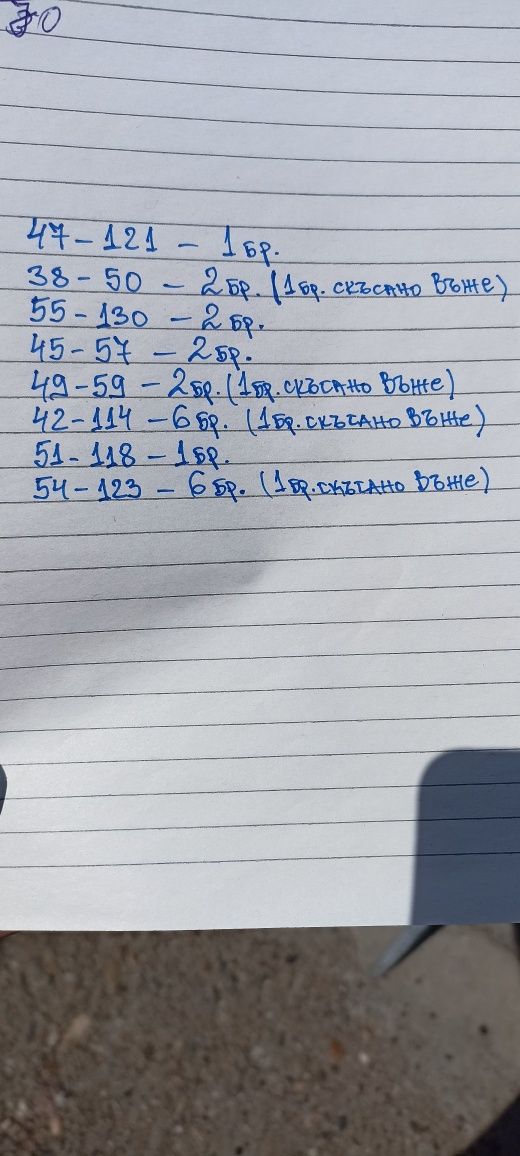 30
47-121 - 1бр.
38-50 - 2бр. (1бр. скъсано въже)
55-130 - 2бр.
45-57 - 2бр.
49-59 - 2бр. (1бр. скъсано въже)
42-114 - 6бр. (1бр. скъсано въже)
51-118 - 1бр.
54-123 - 6бр. (1бр. скъсано въже)